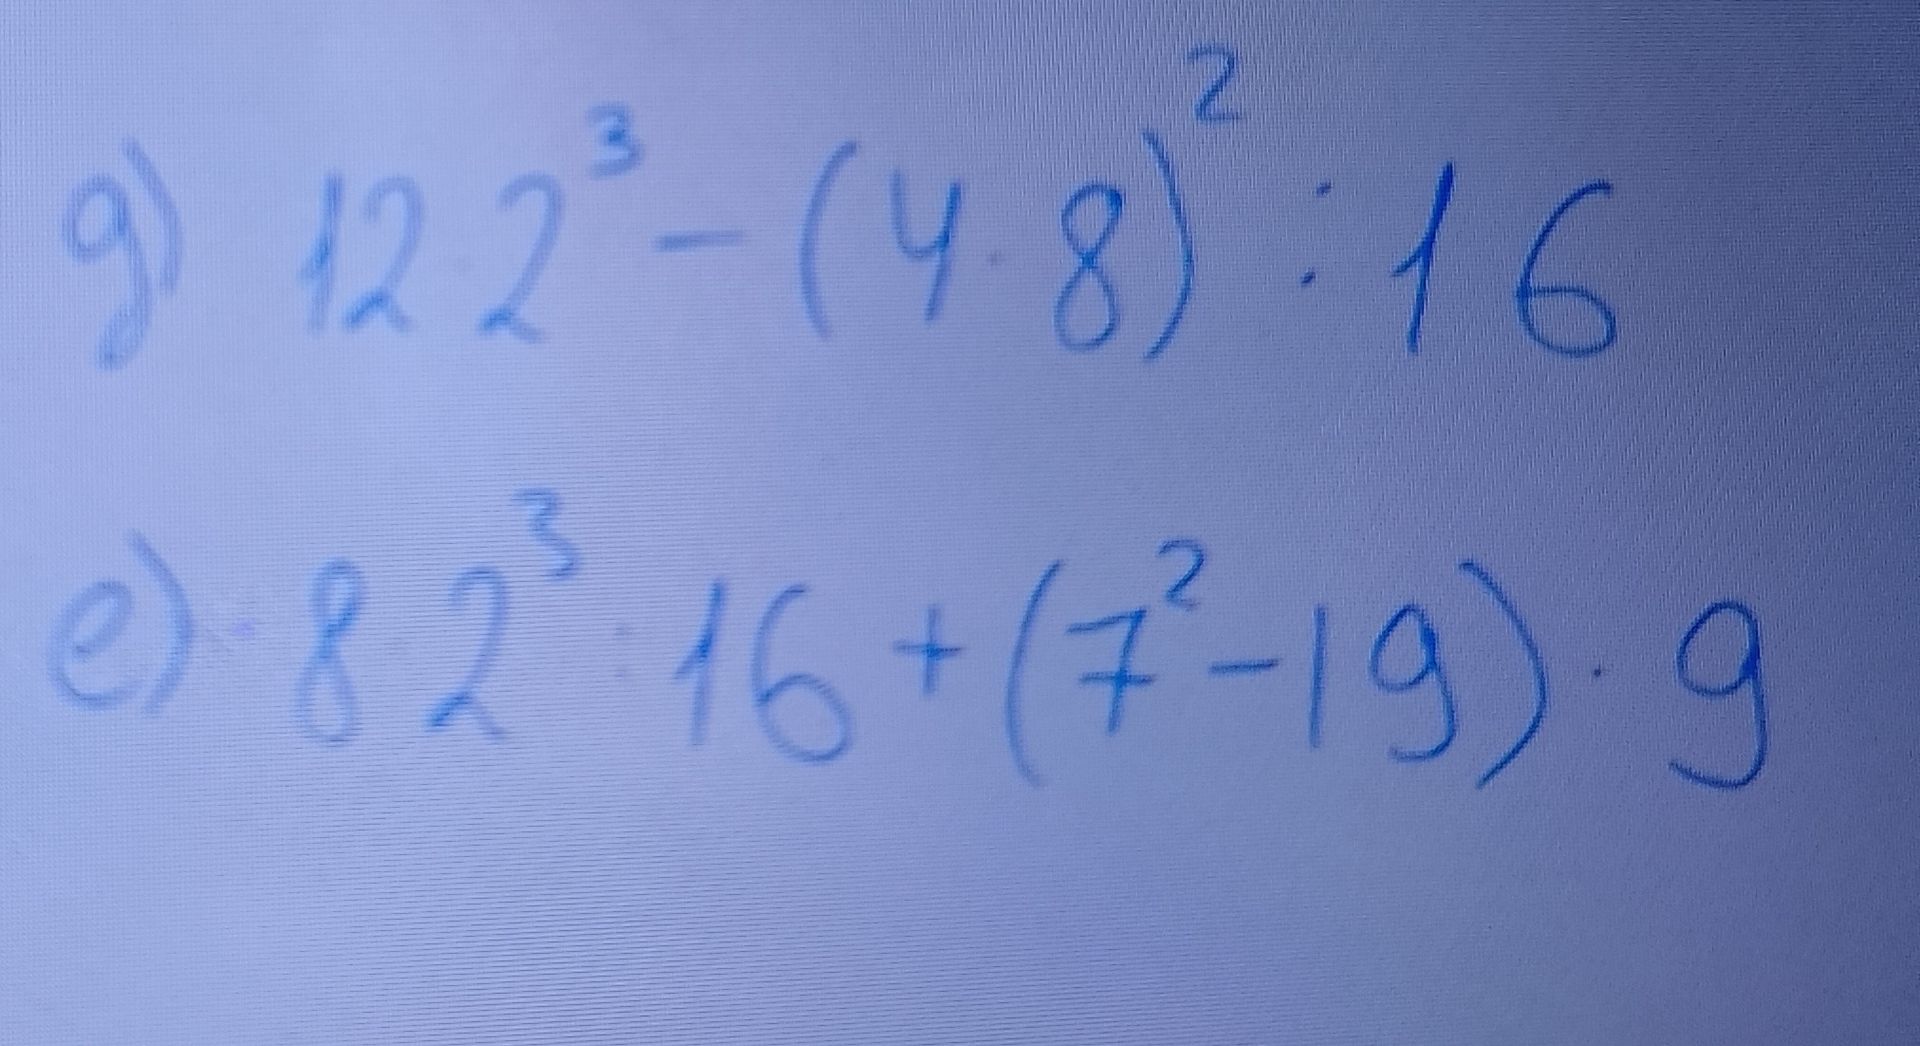 g) 12·2³-(4·8)²:16
e) 8·2³:16+(7²-19)·9